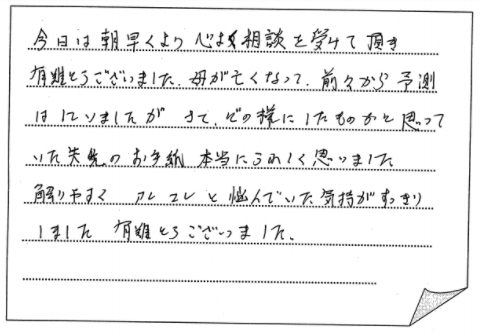 今日は朝早くより心よく相談を受けて頂き
有難とうございました。母が亡くなって、前々から予測
はしていましたが さて、どの様にしたものかと思って
いた矢先の お手紙 本当にうれしく思いました
解りやすく アレ コレ と悩んでいた気持がすっきり
しました 有難とうございました。